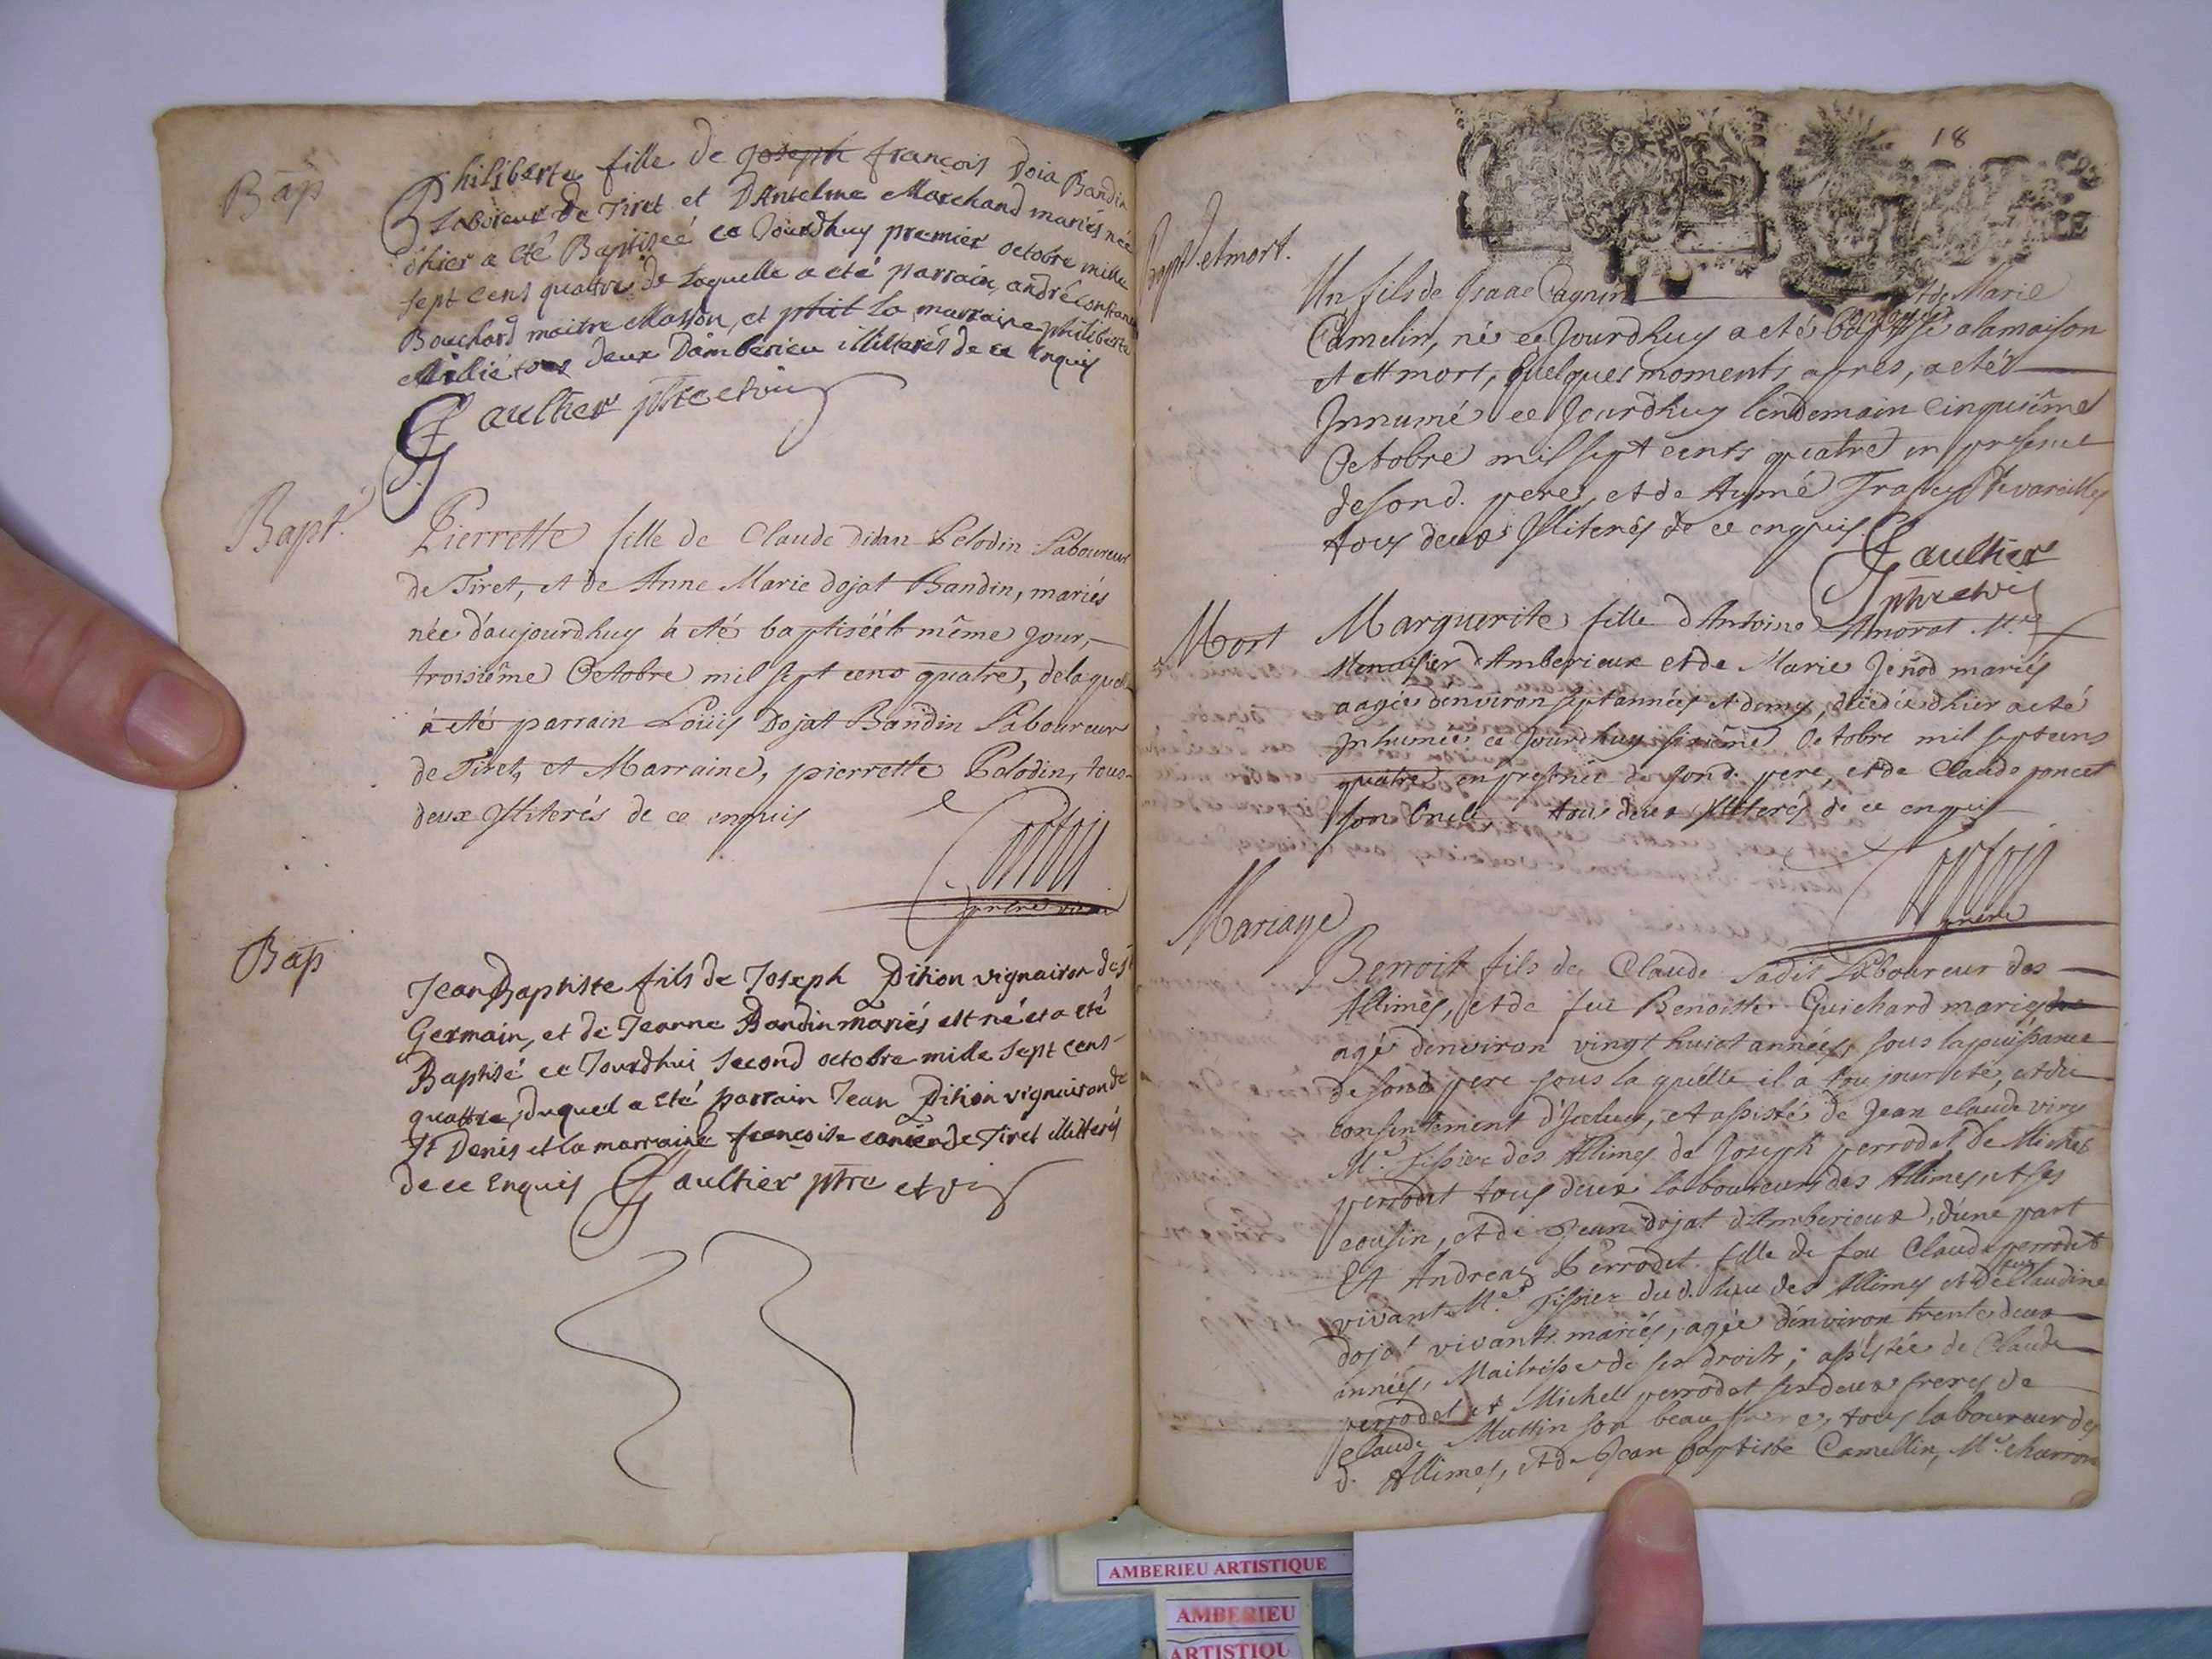 Bap
Philiberte fille de Joseph françois Doia Bandin
Laboreur de Tiret et D'Antelme Marchand mariés née
d'hier a été Baptizeé ce Jourdhuy premier octobre mille
sept cens quattre de Laquelle a eté parrain andré
Bouchard maitre Masson, et phil la marraine philiberte
tous deux Dambérieu illitterés de ce Enquis
Gaultier ptre et vic
Bapt.
Pierrette fille de Claude didan Pelodin Laboureur
de Tiret, et de Anne Marie dojat Bandin, mariés
née d'aujourdhuy à eté baptiséé le même jour,
troisiême Octobre mil sept cens quatre, de laquelle
à eté parrain Loüis Dojat Bandin Laboureur
de Tiret, et Marraine, pierrette Pelodin, tous
deux Illiterés de ce enquis
prêtre vicaire
Bap
Jean Baptiste fils de Joseph Dition vignairon de st
Germain, et de Jeanne Bandin mariés est né et a eté
Baptisé ce Jourdhui second octobre mille sept cens
quattre, duquel a eté parrain Jean Dition vignairon de
St Denis et la marraine françoise de Tiret illitterés
de ce Enquis Gaultier ptre et vic
18
Bapt. et mort.
Un fils de Isaac Cagnin et de Marie
Camelin, né ce Jourdhuy a eté ondoyé a la maison
et est mort, quelques moments apres, a eté
Innumé ce Jourdhuy lendemain Cinquiême
Octobre mil sept cents quatre en presence
de sond. pere, et de Aymé
tous deux Illiterés de ce enquis.
Gaultier
ptre et vic
Mort
Marguerite fille d'Antoine Amorat Me
Menuisier d'Amberieux et de Marie Jenod mariés
aagée denviron sept années et demy, décédée dhier a eté
Inhumée ce Jourdhuy sixiême Octobre mil sept cens
quatre en presence de sond. pere, et de Claude poncet
son Oncle, tous deux Illiterés de ce enquis
prêtre
Mariage
Benoit fils de Claude Sadit Laboureur des
Allimes, et de feu Benoitte Guichard mariés
agé denviron vingt huict années, sous la puissance
de sond pere sous la quelle il à toujour eté, et du
consentement d'Iceluy, et assisté de Jean claude viry
Me. Tissier des Allimes de Joseph perrodet de Michel
perrodet tous deux laboureurs des Allimes, et ses
cousin, et de Jean Dojat d'Amberieux, d'une part
Et Andreas Perrodet fille de feu Claude perrodet
vivant Me. Tissier dud. lieu des Allimes et de feu Claudine
dojat vivants mariés, agée d'environ trente deux
années, Maitrisse de ses droits; assistée de Claude
perrodet et Michel perrodet ses deux freres de
claude Muttin son beau frere, tous laboureur des
d. Allimes, et de Jean baptiste Camellin, Me. charron
AMBERIEU ARTISTIQUE
AMBERIEU
ARTISTIQU